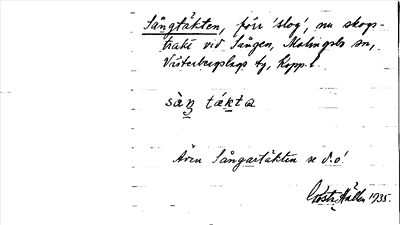 Sångtäkten, förr 'slog', nu skogs-
trakt vid Sången, Malingsbo sn,
Västerbergslags tg, Kopp. l.
sàŋ tákta
Även Sångartäkten se d.o!
Gösta Hallén 1935.